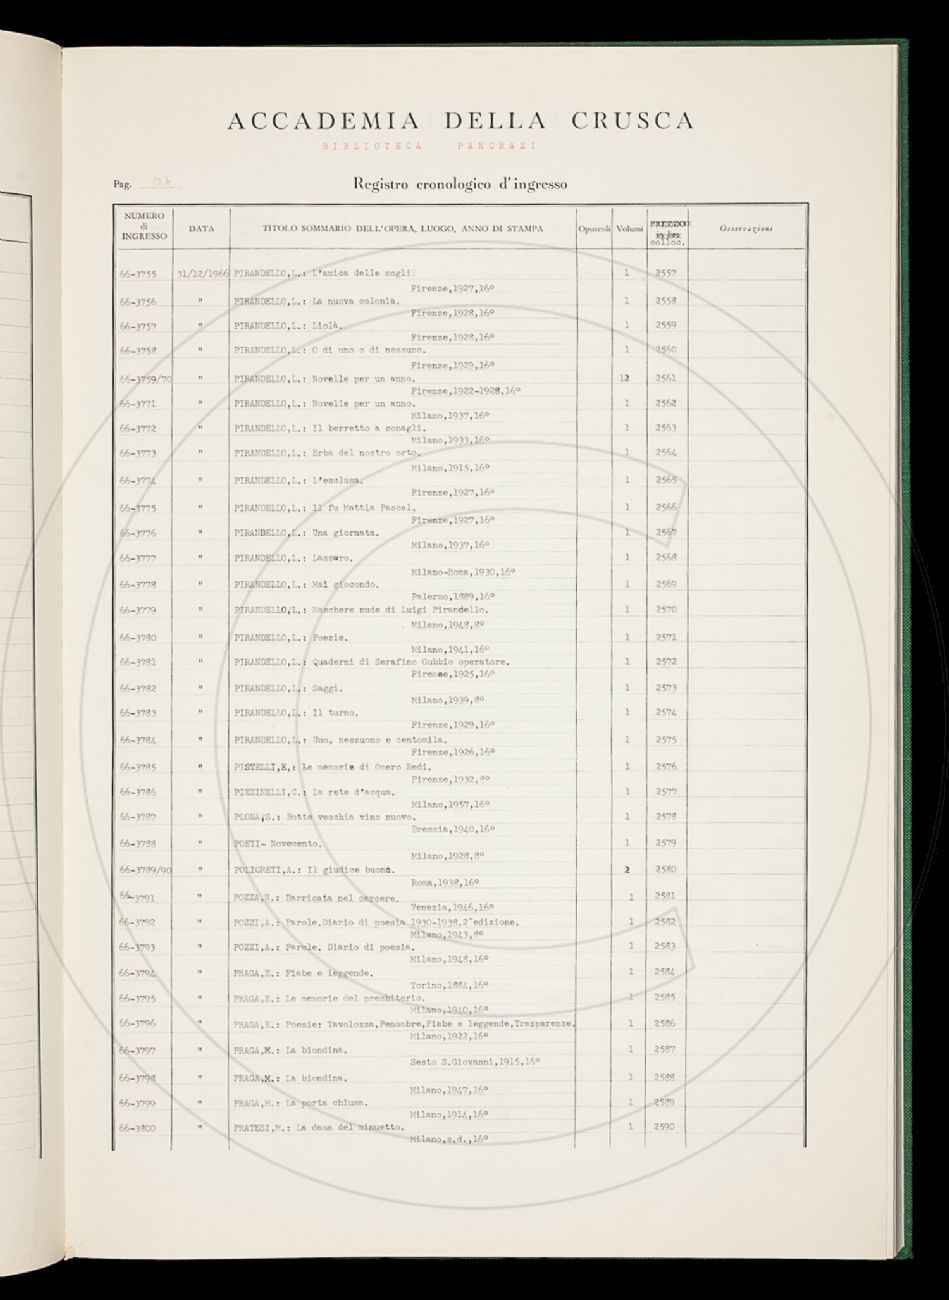 ACCADEMIA DELLA CRUSCA
BIBLIOTECA PANCRAZI
Pag.
Registro cronologico d'ingresso
NUMERO di INGRESSO DATA TITOLO SOMMARIO DELL'OPERA, LUOGO, ANNO DI STAMPA Opuscoli Volumi colloc. Osservazioni
66-3755 31/12/1966 PIRANDELLO,L.: L'amica delle mogli 1 2557
Firenze,1927,16º
66-3756 " PIRANDELLO,L.: La nuova colonia. 1 2558
Firenze,1928,16º
66-3757 " PIRANDELLO,L.: Liolà. 1 2559
Firenze,1928,16º
66-3758 " PIRANDELLO,L.: O di uno o di nessuno. 1 2560
Firenze,1929,16º
66-3759/70 " PIRANDELLO,L.: Novelle per un anno. 12 2561
Firenze,1922-1928,16º
66-3771 " PIRANDELLO,L.: Novelle per un anno. 1 2562
Milano,1937,16º
66-3772 " PIRANDELLO,L.: Il berretto a sonagli. 1 2563
Milano,1933,16º
66-3773 " PIRANDELLO,L.: Erba del nostro orto. 1 2564
Milano,1915,16º
66-3774 " PIRANDELLO,L.: L'esclusa. 1 2565
Firenze,1927,16º
66-3775 " PIRANDELLO,L.: Il fu Mattia Pascal. 1 2566
Firenze,1927,16º
66-3776 " PIRANDELLO,L.: Una giornata. 1 2567
Milano,1937,16º
66-3777 " PIRANDELLO,L.: Lazzaro. 1 2568
Milano-Roma,1930,16º
66-3778 " PIRANDELLO,L.: Mal giocondo. 1 2569
Palermo,1889,16º
66-3779 " PIRANDELLO,L.: Maschere nude di Luigi Pirandello. 1 2570
Milano,1948,8º
66-3780 " PIRANDELLO,L.: Poesie. 1 2571
Milano,1941,16º
66-3781 " PIRANDELLO,L.: Quaderni di Serafino Gubbio operatore. 1 2572
Firenze,1925,16º
66-3782 " PIRANDELLO,L.: Saggi. 1 2573
Milano,1939,8º
66-3783 " PIRANDELLO,L.: Il turno. 1 2574
Firenze,1929,16º
66-3784 " PIRANDELLO,L.: Uno, nessuono e centomila. 1 2575
Firenze,1926,16º
66-3785 " PISTELLI,E,: Le memorie di Omero Redi. 1 2576
Firenze,1932,8º
66-3786 " PIZZINELLI,C.: La rete d'acqua. 1 2577
Milano,1957,16º
66-3787 " PLONA,S.: Botte vecchia vino nuovo. 1 2578
Brescia,1940,16º
66-3788 " POETI- Novecento. 1 2579
Milano,1928,8º
66-3789/90 " POLICRETI,A.: Il giudice buono. 2 2580
Roma,1938,16º
66-3791 " POZZA,N.: Barricata nel carcere. 1 2581
Venezia,1946,16º
66-3792 " POZZI,A.: Parole.Diario di poesia 1930-1938.2ªedizione. 1 2582
Milano,1943,8º
66-3793 " POZZI,A.: Parole. Diario di poesia. 1 2583
Milano,1948,16º
66-3794 " PRAGA,E.: Fiabe e leggende. 1 2584
Torino,1884,16º
66-3795 " PRAGA,E.: Le memorie del presbiterio. 1 2585
Milano,1940,16º
66-3796 " PRAGA,E.: Poesie: Tavolozza,Penombre,Fiabe e leggende,Trasparenze. 1 2586
Milano,1922,16º
66-3797 " PRAGA,M.: La biondina. 1 2587
Sesto S.Giovanni,1915,16º
66-3798 " PRAGA,M.: La biondina. 1 2588
Milano,1947,16º
66-3799 " PRAGA,M.: La porta chiusa. 1 2589
Milano,1914,16º
66-3800 " PRATESI,M.: La dama del minuetto. 1 2590
Milano,s.d.,16º